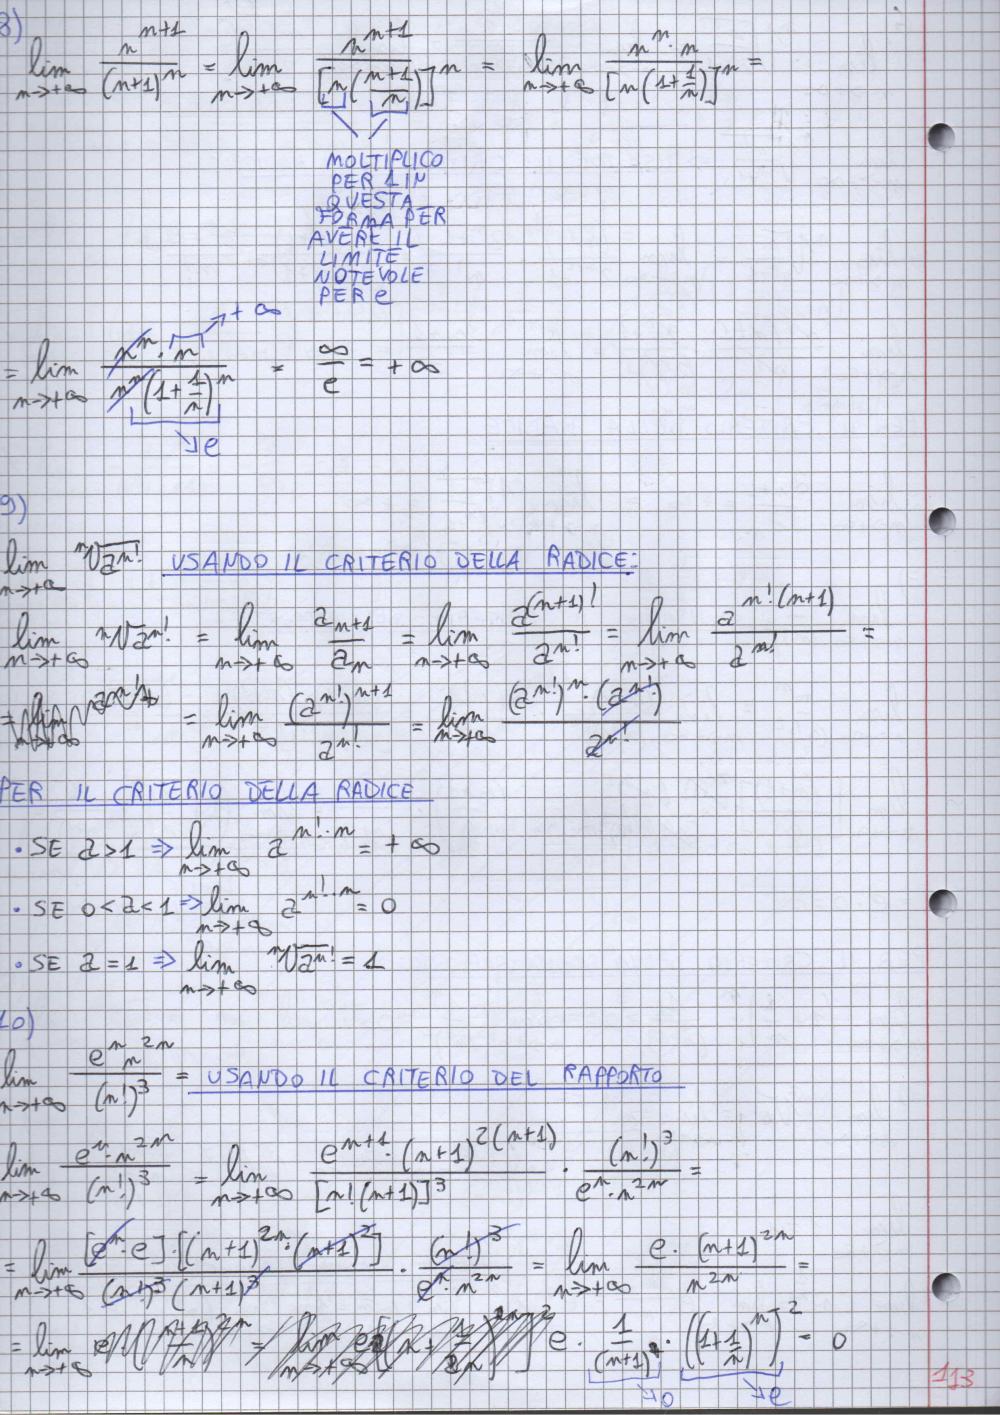 8)
lim n→+∞ n^(n+1)/(n+1)^n = lim n→+∞ n^(n+1)/[n((n+1)/n)]^n = lim n→+∞ n^n · n/[n(1+1/n)]^n =
MOLTIPLICO
PER 1 IN
QUESTA
FORMA PER
AVERE IL
LIMITE
NOTEVOLE
PER e
+∞
= lim n→+∞ n^n · n/n^n(1+1/n)^n = ∞/e = +∞
↘e
9)
lim n→+∞ ⁿ√a^n! USANDO IL CRITERIO DELLA RADICE:
lim n→+∞ ⁿ√a^n! = lim n→+∞ a_(n+1)/a_n = lim n→+∞ a^(n+1)!/a^n! = lim n→+∞ a^(n!(n+1))/a^n! =
= lim n→+∞ (a^n!)^(n+1)/a^n! = lim n→+∞ (a^n!)^n · (a^n!)/a^n!
PER IL CRITERIO DELLA RADICE
• SE a>1 ⇒ lim n→+∞ a^(n!·n) = +∞
• SE 0<a<1 ⇒ lim n→+∞ a^(n!·n) = 0
• SE a=1 ⇒ lim n→+∞ ⁿ√a^n! = 1
10)
lim n→+∞ e^n n^2n/(n!)^3 = USANDO IL CRITERIO DEL RAPPORTO
lim n→+∞ e^n · n^2n/(n!)^3 = lim n→+∞ e^(n+1) · (n+1)^2(n+1)/[n!(n+1)]^3 · (n!)^3/e^n · n^2n =
= lim n→+∞ [e^n · e]·[(n+1)^2n · (n+1)^2]/(n!)^3 (n+1)^3 · (n!)^3/e^n · n^2n = lim n→+∞ e · (n+1)^2n/n^2n =
= lim n→+∞ e · 1/(n+1) · ((1+1/n)^n)^2 = 0
↘0 ↘e
113